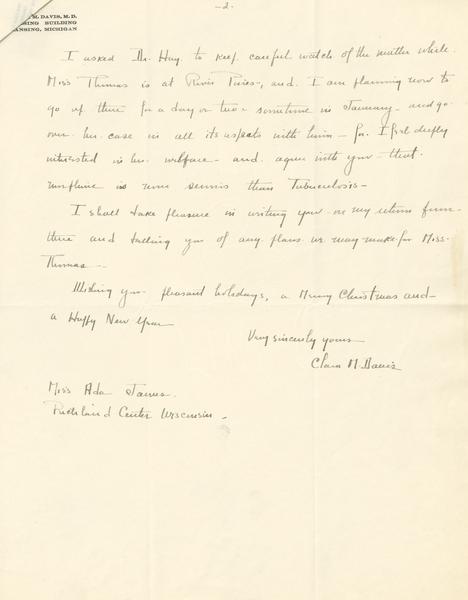 -2-
M. DAVIS, M.D.
BUILDING
LANSING, MICHIGAN
I asked Dr. Hoy. to keep careful watch of the matter while
Miss Thomas is at River Pines, and I am planning now to
go up there for a day or two sometime in January - and go
over her case in all its aspects with him - for I feel deeply
interested in her welfare - and agree with you - that
morphine is more serious than Tuberculosis -
I shall take pleasure in writing you on my return from
there and telling you of any plans we may make for Miss
Thomas -
Wishing you pleasant holidays, a Merry Christmas and
a Happy New Year
Very sincerely yours
Clara M. Davis
Miss Ada James.
Richland Center Wisconsin -